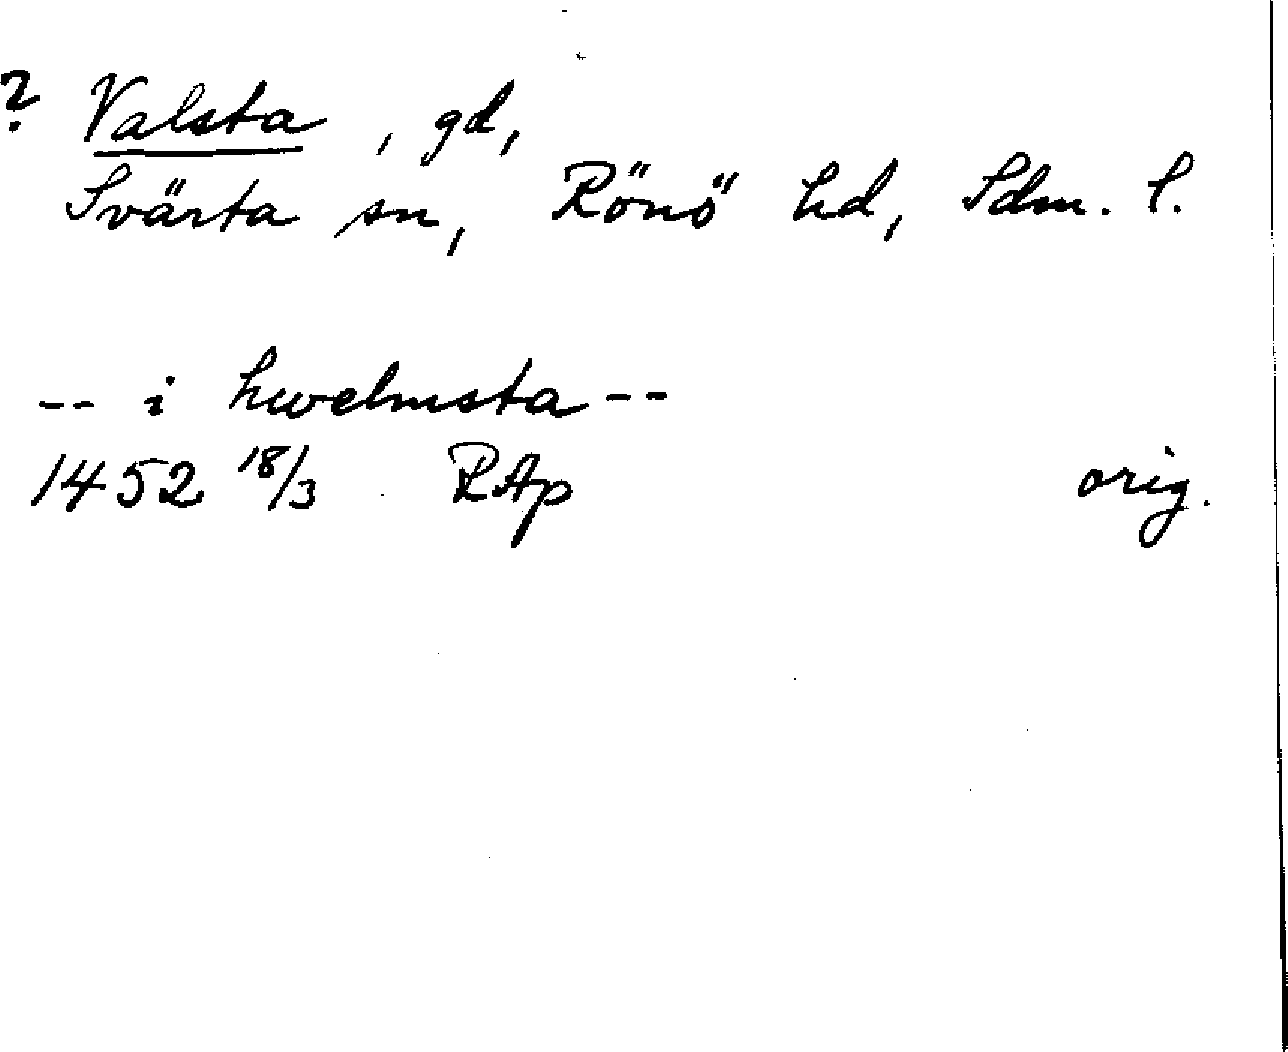 ? Valsta, gd,
Svärta sn, Rönö hd, Sdm. l.
-- i hwelmsta --
1452 18/3 RAp orig.